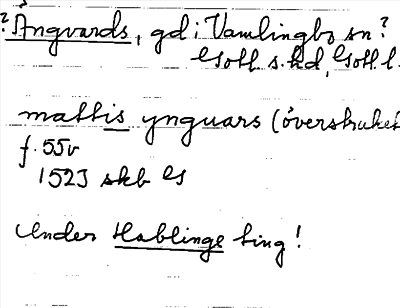 ? Ångvards, gd i Vamlingbo sn?
Gotl. s. hd, Gotl. l.
mattis ynguars (överstruket
f. 55v
1523 skb G
Under Hablinge ting!